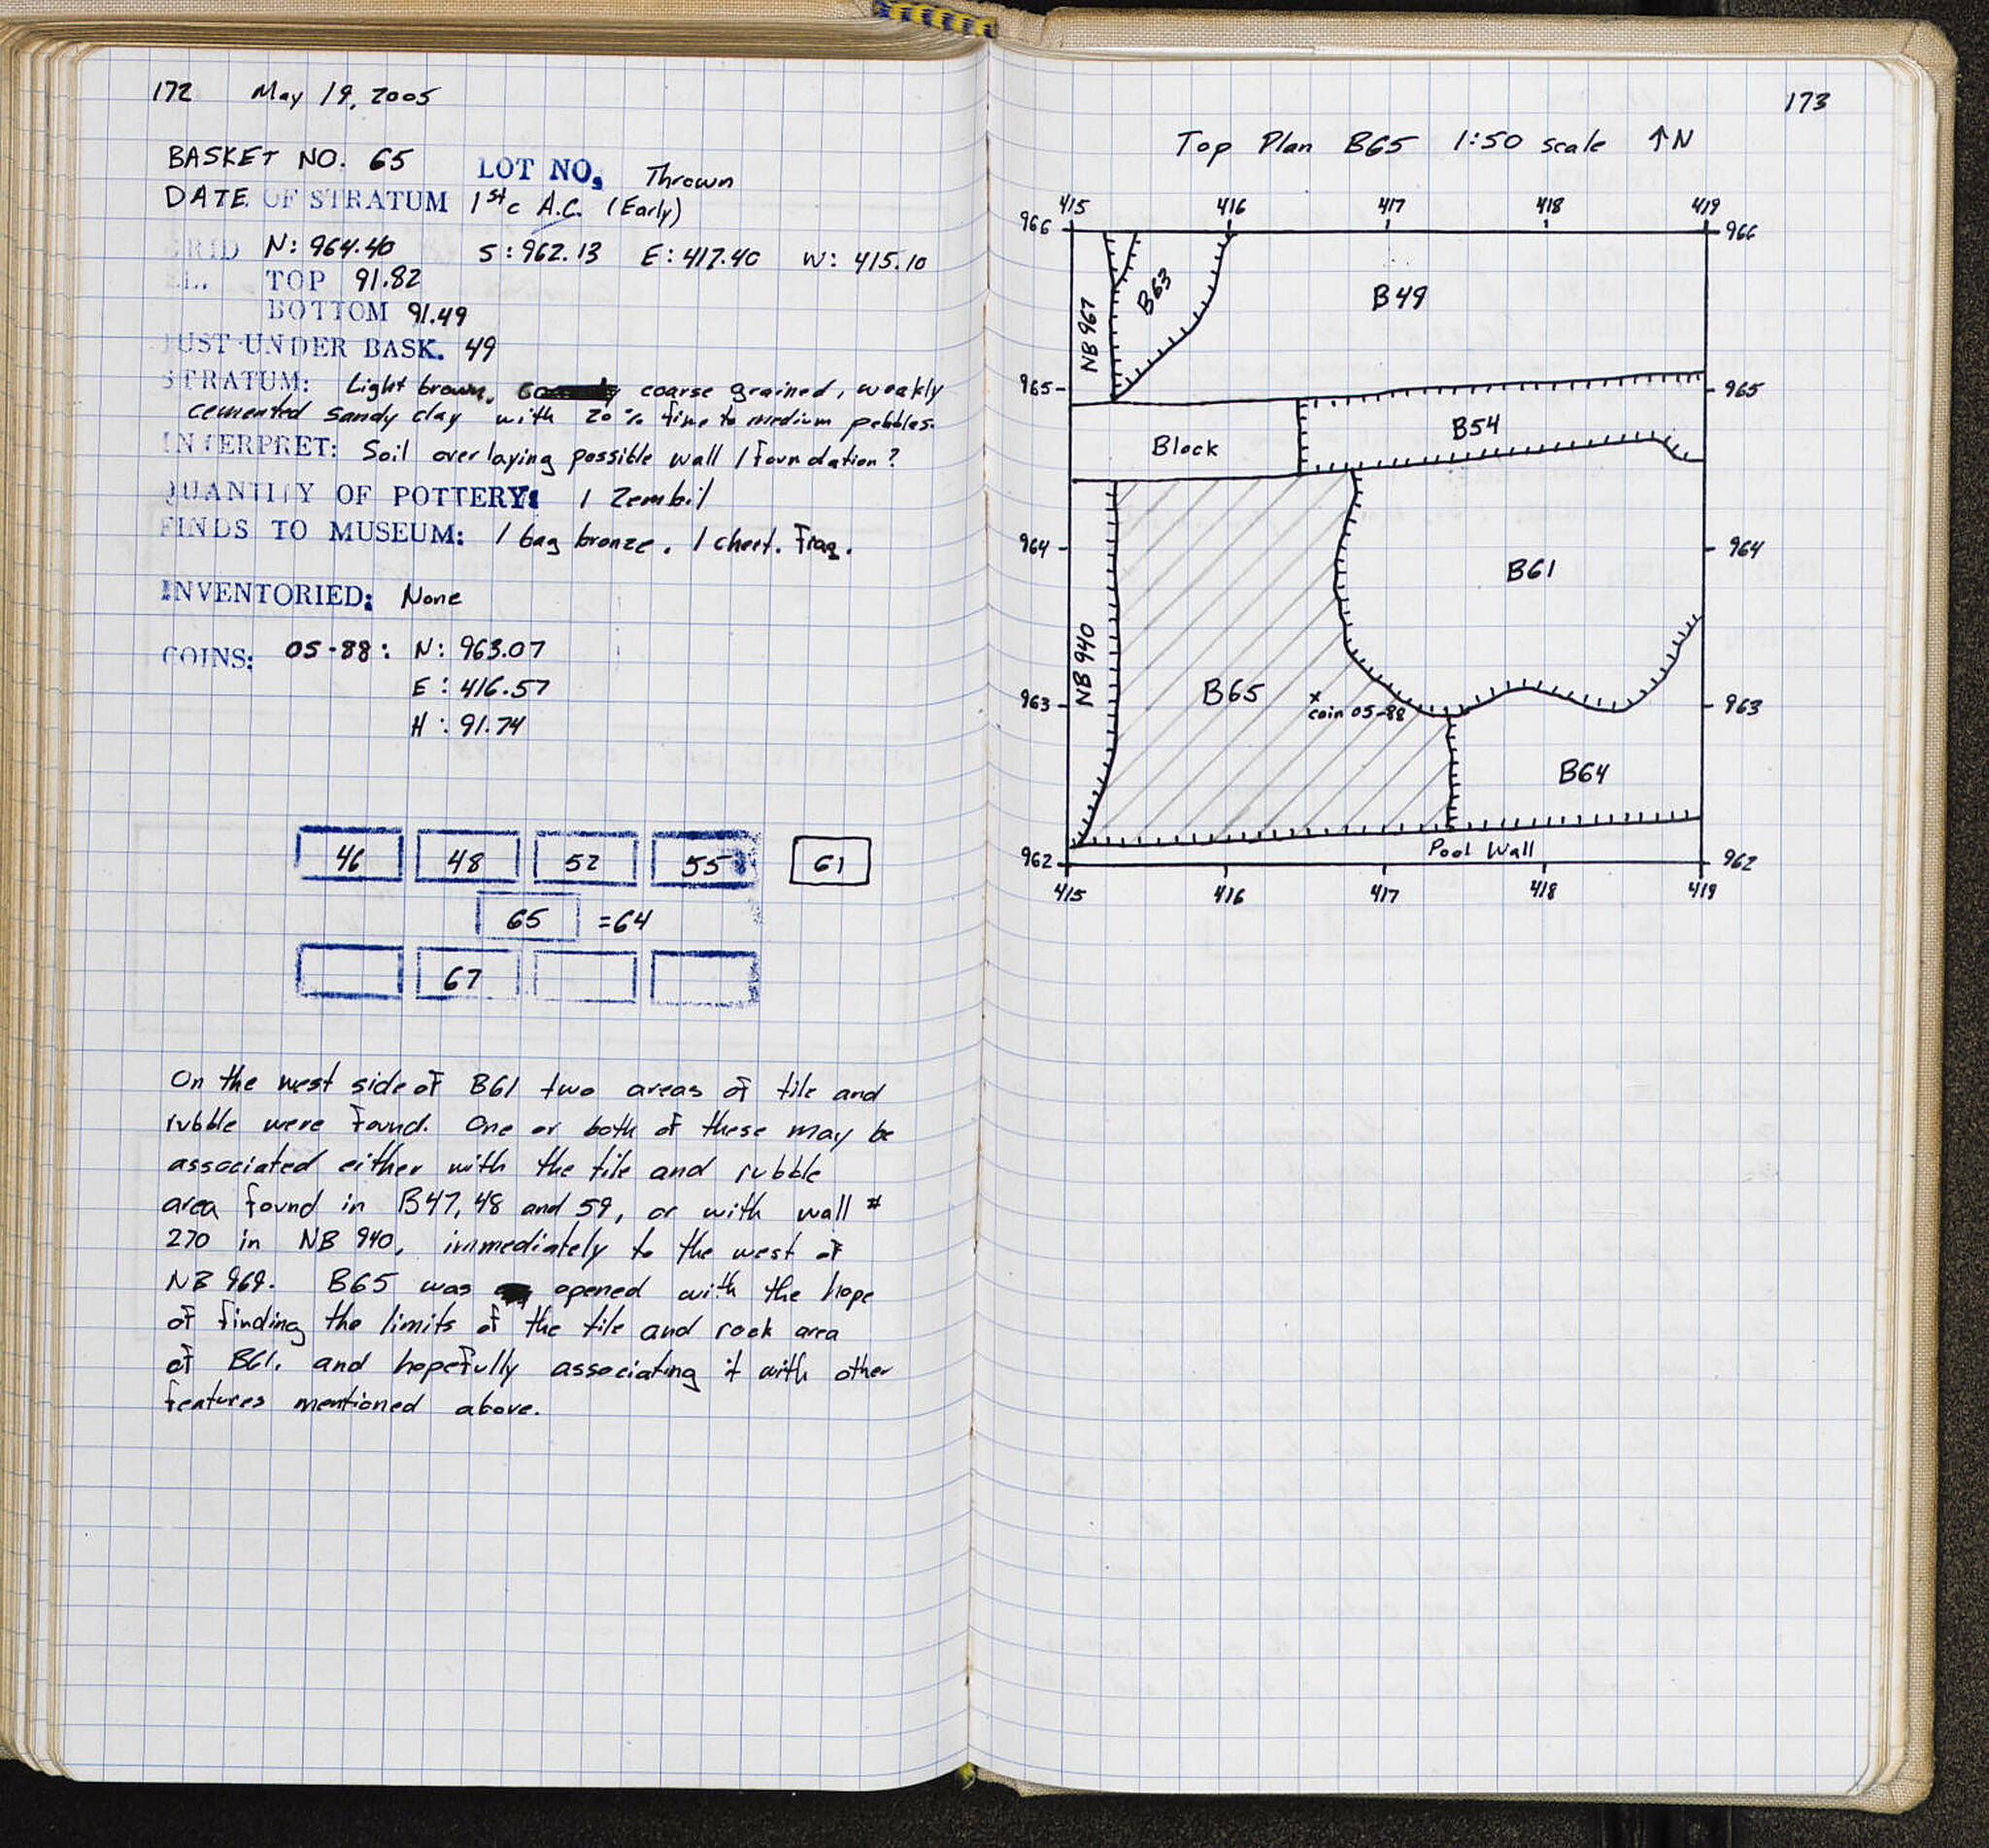 172 May 19, 2005
BASKET NO. 65 LOT NO. Thrown
DATE OF STRATUM 1st c A.C. (Early)
GRID N: 964.40 S: 962.13 E: 417.40 W: 415.10
EL. TOP 91.82
BOTTOM 91.49
JUST UNDER BASK. 49
STRATUM: Light brown, coarse grained, weakly
cemented sandy clay with 20% fine to medium pebbles.
INTERPRET: Soil overlaying possible wall / foundation?
QUANTITY OF POTTERY: 1 Zembil
FINDS TO MUSEUM: 1 bag bronze, 1 chert. Frag.
INVENTORIED: None
COINS: 05-88: N: 963.07
E: 416.57
H: 91.74
46 48 52 55 61
65 =64
67
On the west side of B61 two areas of tile and
rubble were found. One or both of these may be
associated either with the tile and rubble
area found in B47, 48 and 59, or with wall #
270 in NB 940, immediately to the west of
NB 969. B65 was opened with the hope
of finding the limits of the tile and rock area
of B61, and hopefully associating it with other
features mentioned above.
173
Top Plan B65 1:50 scale ↑N
415 416 417 418 419
966 966
NB 967 B63 B49
965 965
Block B54
964 964
B61
NB 940
B65
963 963
coin 05-88
B64
Pool Wall
962 962
415 416 417 418 419